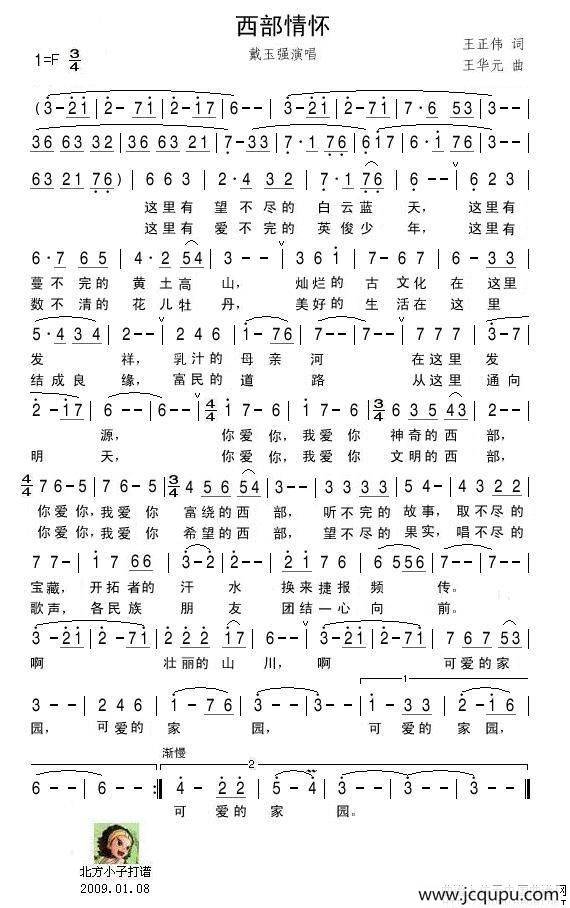 西部情怀
1=F 3/4
戴玉强演唱
王正伟 词
王华元 曲
(3-21|2-71|2-17|6--|3-21|2-71|7·6 53|3--|
36 63 32|36 63 32|6 21 17|7-33|7·1 76|617|3--|
63 21 76)|6 6 3|2·4 32|7·1 76|6--|6 2 3|
这里有 望不尽的 白云蓝 天, 这里有
这里有 爱不完的 英俊少 年, 这里有
6·7 65|4·2 54|3--|3 6 1|7·1 76|2 2 3|
蔓不完的 黄土高 山, 灿烂的 古文化 在这里
数不清的 花儿牡 丹, 美好的 生活在 这里
5·4 34|2--|2 4 6|1-76|7--|7--|7 7 7|3-7|
发 祥, 乳汁的 母亲河 在这里 发
结成良 缘, 富民的 道 路 从这里 通向
2-17|6--|6--|4/4 1 7 6-|1 7 6-|3/4 6 35 43|2--|
源, 你爱你,我爱你 神奇的西 部,
明 天, 你爱你,我爱你 文明的西 部,
4/4 7 6 6-5|7 6 6-5|3/4 4 56 54|3--|3 3 3 3|5 5 5|4 3 2 2|
你爱你,我爱你 富绕的西 部, 听不完的 故事, 取不尽的
你爱你,我爱你 希望的西 部, 望不尽的 果实, 唱不尽的
77-|17 66|3-2|2--|21 76|6 556|7--|7--|
宝藏, 开拓者的 汗 水 换来捷报 频 传。
歌声, 各民族 朋 友 团结一心向 前。
3-21|2-71|2 22 17|6--|3-21|2-71|7 67 53|
啊 壮丽的 山 川, 啊 可爱的家
3--|2 4 6|1-76|3--|3--|1-33|2-16|
园, 可爱的 家 园, 可爱的 家园,
1
渐慢
2
6--|6--:|4-22|2-22|5-4|3--|3--‖
可 爱的 家 园。
北方小子打谱
2009.01.08
www.jcqupu.com